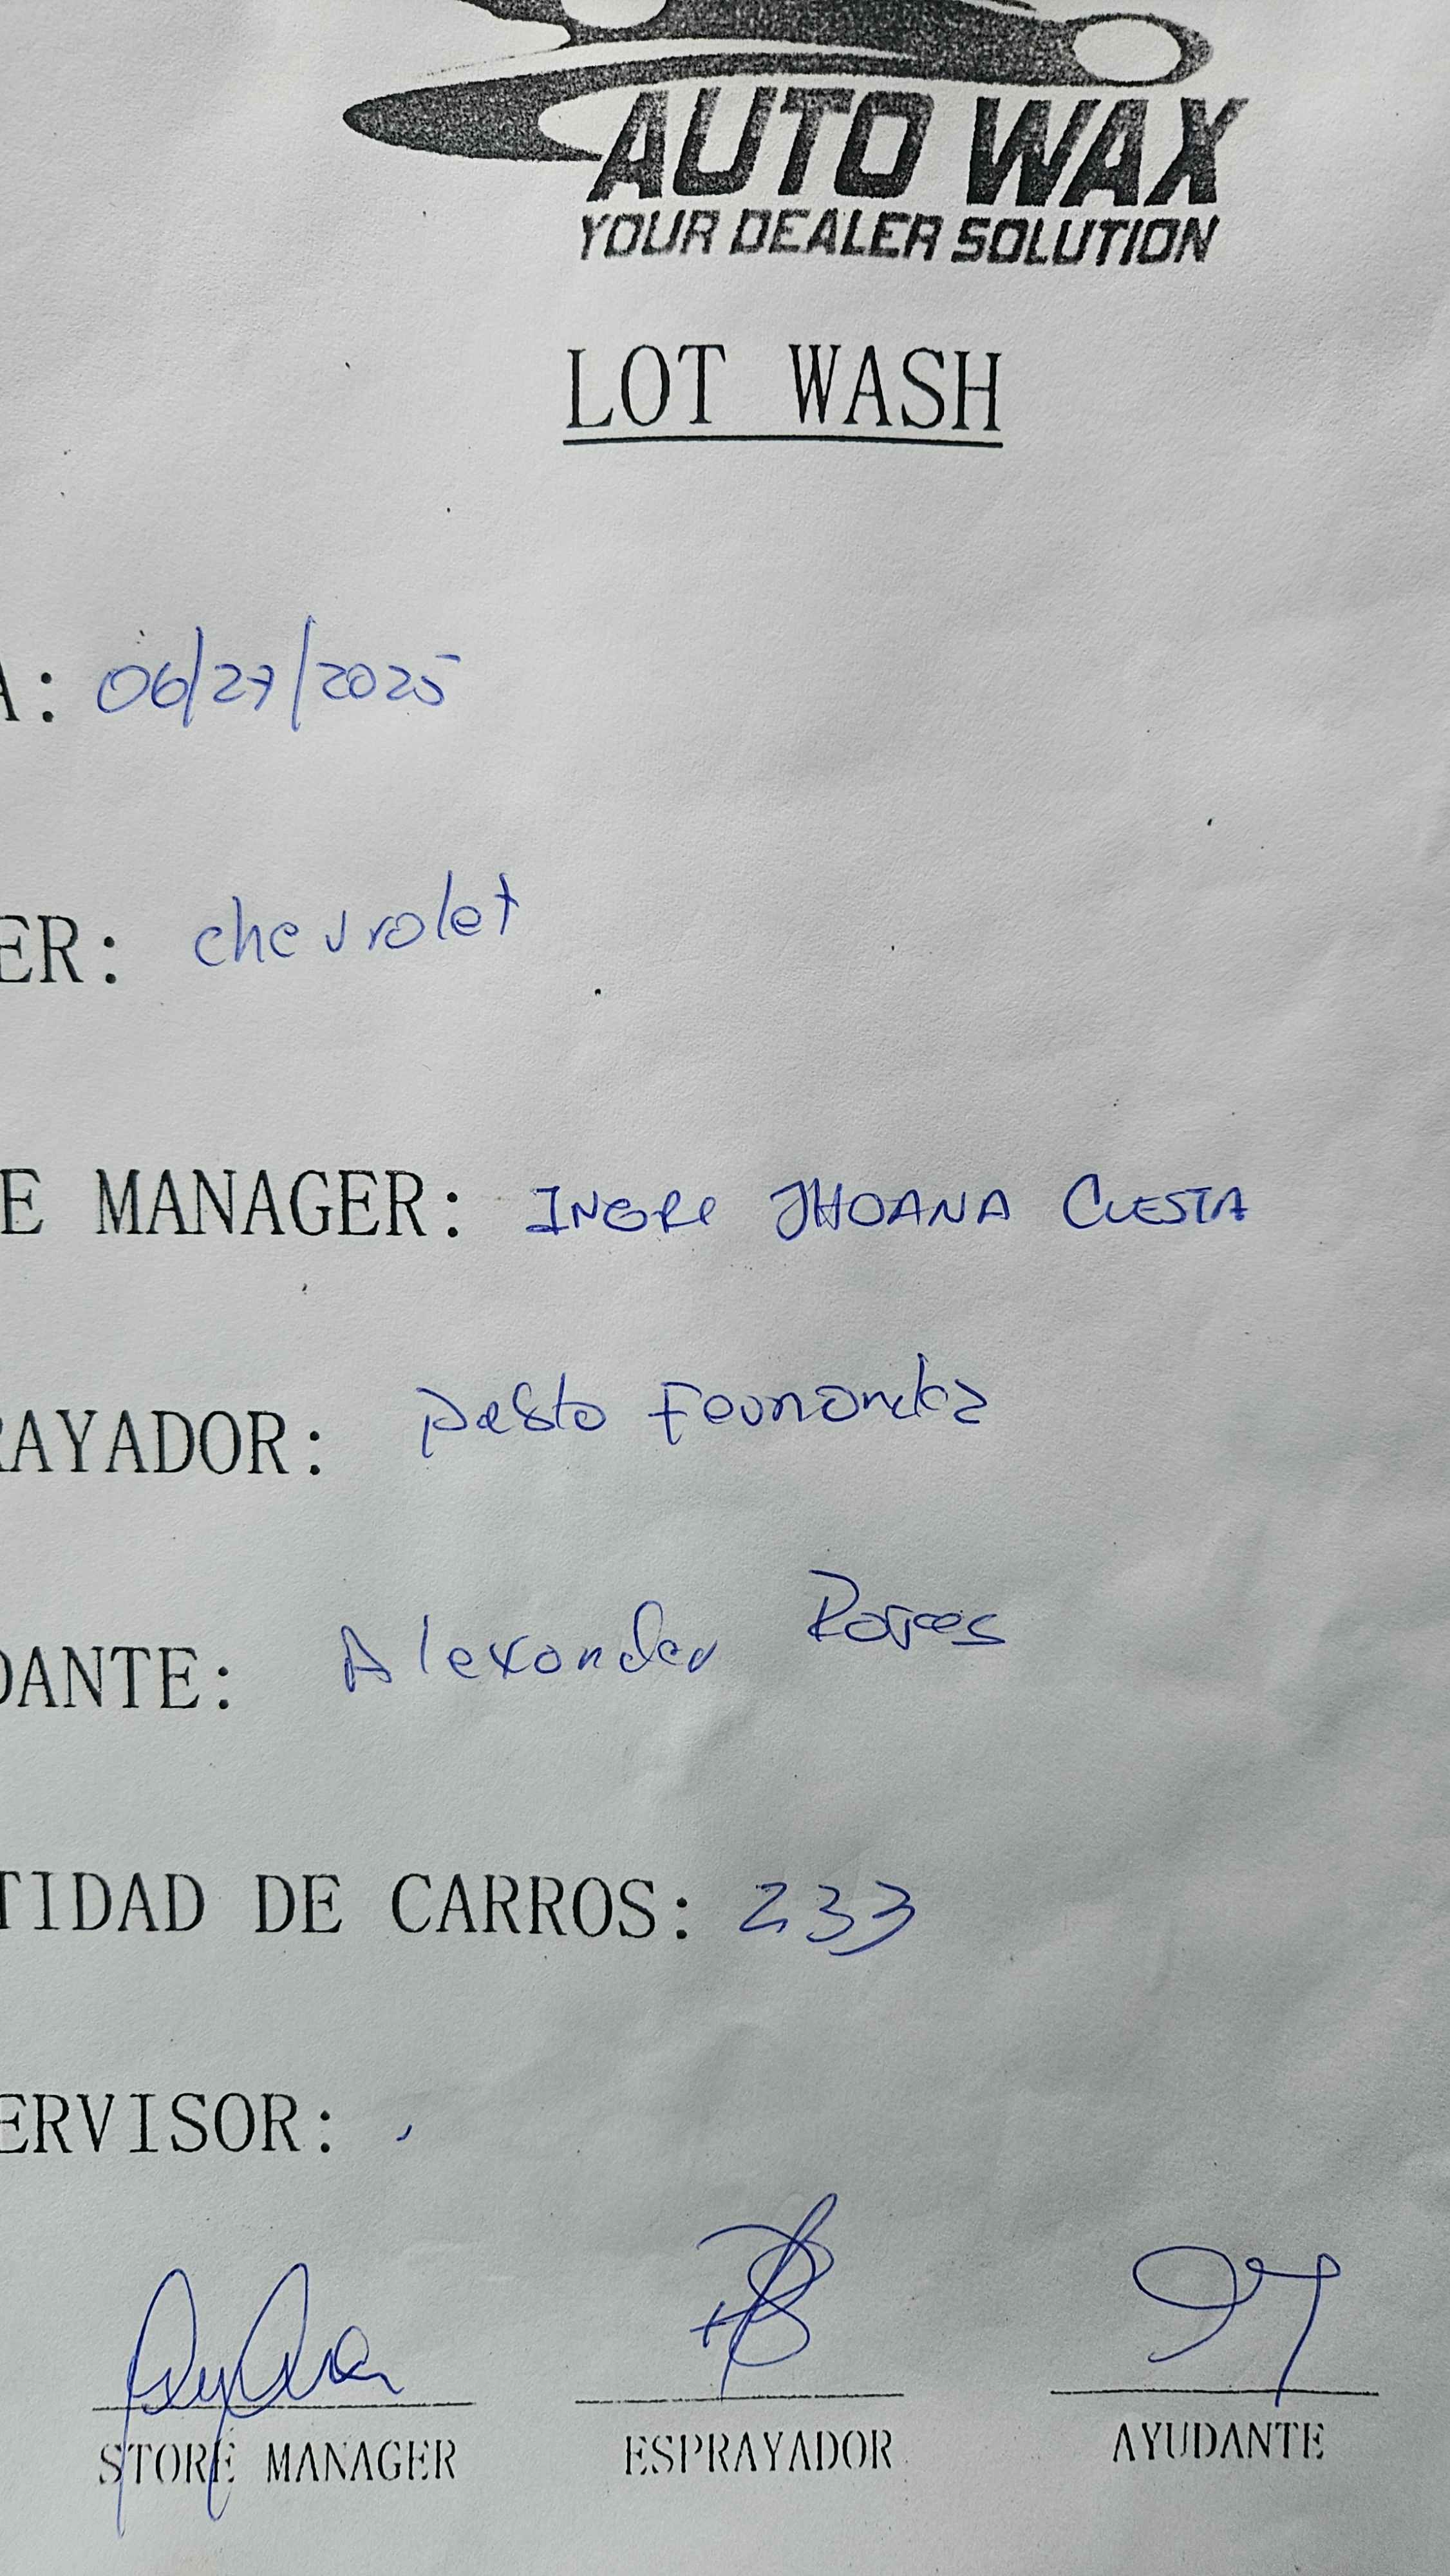 AUTO WAX
YOUR DEALER SOLUTION
LOT WASH
A: 06/27/2025
ER: chevrolet
E MANAGER: INGRI JHOANA CUESTA
RAYADOR: pablo Fernandez
DANTE: Alexander
TIDAD DE CARROS: 233
ERVISOR:
STORE MANAGER ESPRAYADOR AYUDANTE